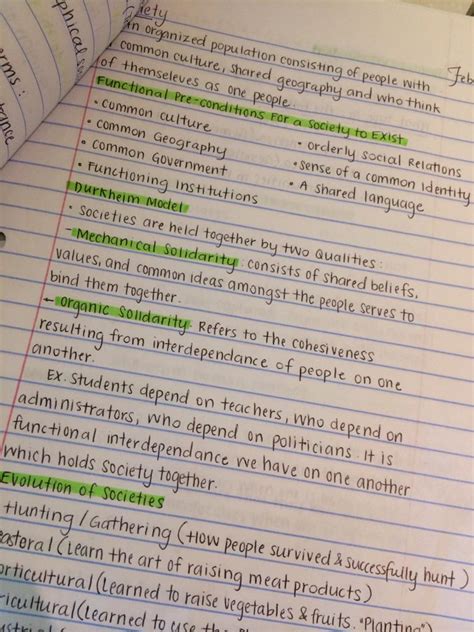 an organized population consisting of people with
common culture, shared geography and who think
of themseleves as one people
Functional Pre-conditions For a Society to Exist
• common culture
• common Geography
• common Government
• Functioning Institutions
• orderly social Relations
• sense of a common Identity
• A shared language
Durkheim Model
• Societies are held together by two Qualities:
- Mechanical Solidarity: consists of shared beliefs,
values, and common ideas amongst the people serves to
bind them together.
- Organic Solidarity: Refers to the cohesiveness
resulting from interdependance of people on one
another.
Ex. Students depend on teachers, who depend on
administrators, who depend on politicians. It is
functional interdependance we have on one another
which holds society together.
Evolution of Societies
Hunting / Gathering (How people survived & successfully hunt)
astoral (Learn the art of raising meat products)
orticultural (Learned to raise vegetables & fruits. "Planting")
ricultural (Learned to use the